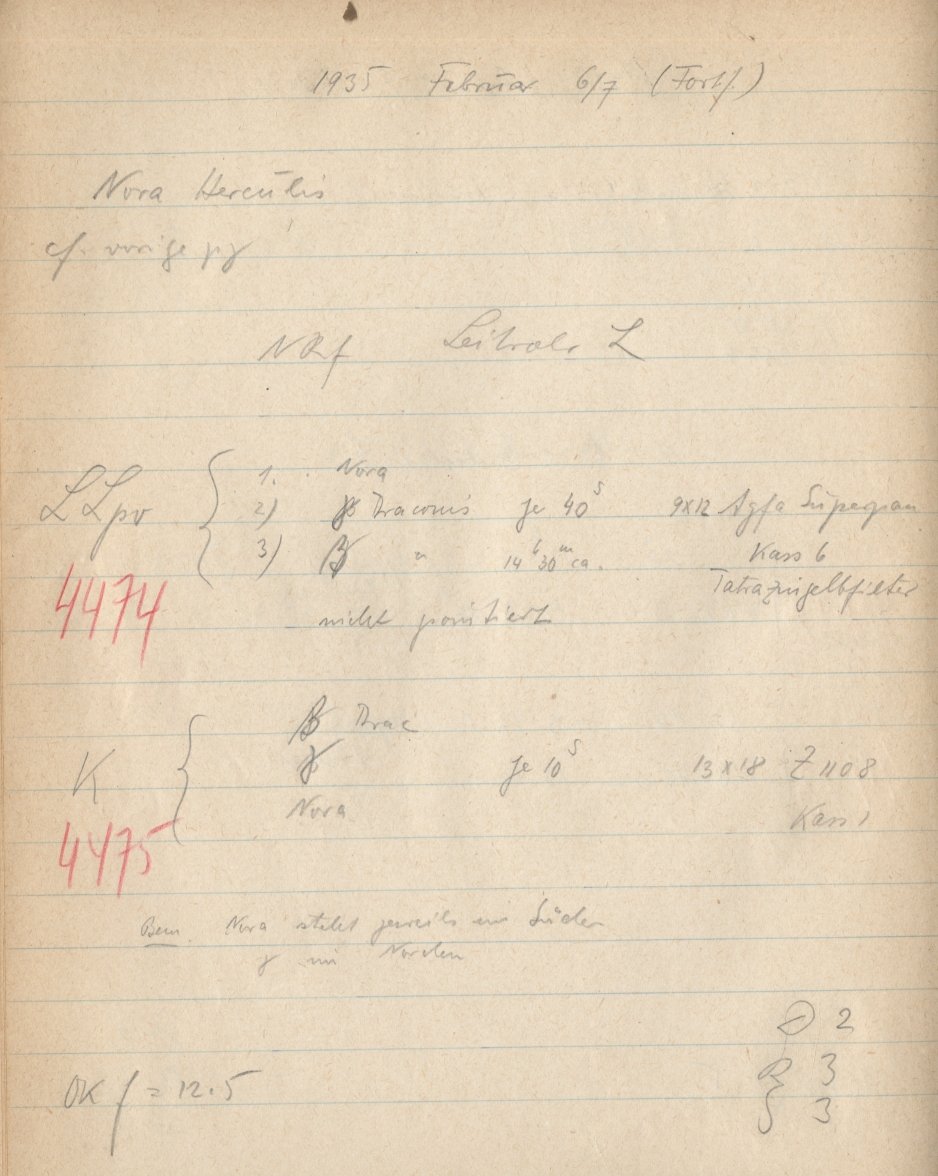 1935 Februar 6/7 (Forts.)
Nova Herculis
cf. vorige pg
NRf Leitrohr L
LLpv { 1. Nova
2) γ Draconis je 40ˢ 9x12 Agfa Supergran
3) β " 14ʰ30ᵐ ca. Kass 6
Tatrazingelbfilter
4474
nicht pointiert
β Drac
K { γ je 10ˢ 13x18 Z 1108
Nova Kass 1
4475
Bem. Nova steht jeweils im Süden
γ im Norden
2
3
OK f = 12.5
3